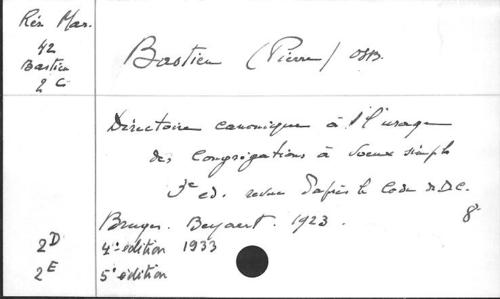 Rés. Mar.
42
Bastien
2 C
Bastien (Pierre) OSB.
Directoire canonique à l'usage
des Congrégations à voeux simples
3e ed. revue d'après le Code de D.C.
Bruges. Beyaert. 1923. 8°
2D 4e édition 1933
2E 5e édition